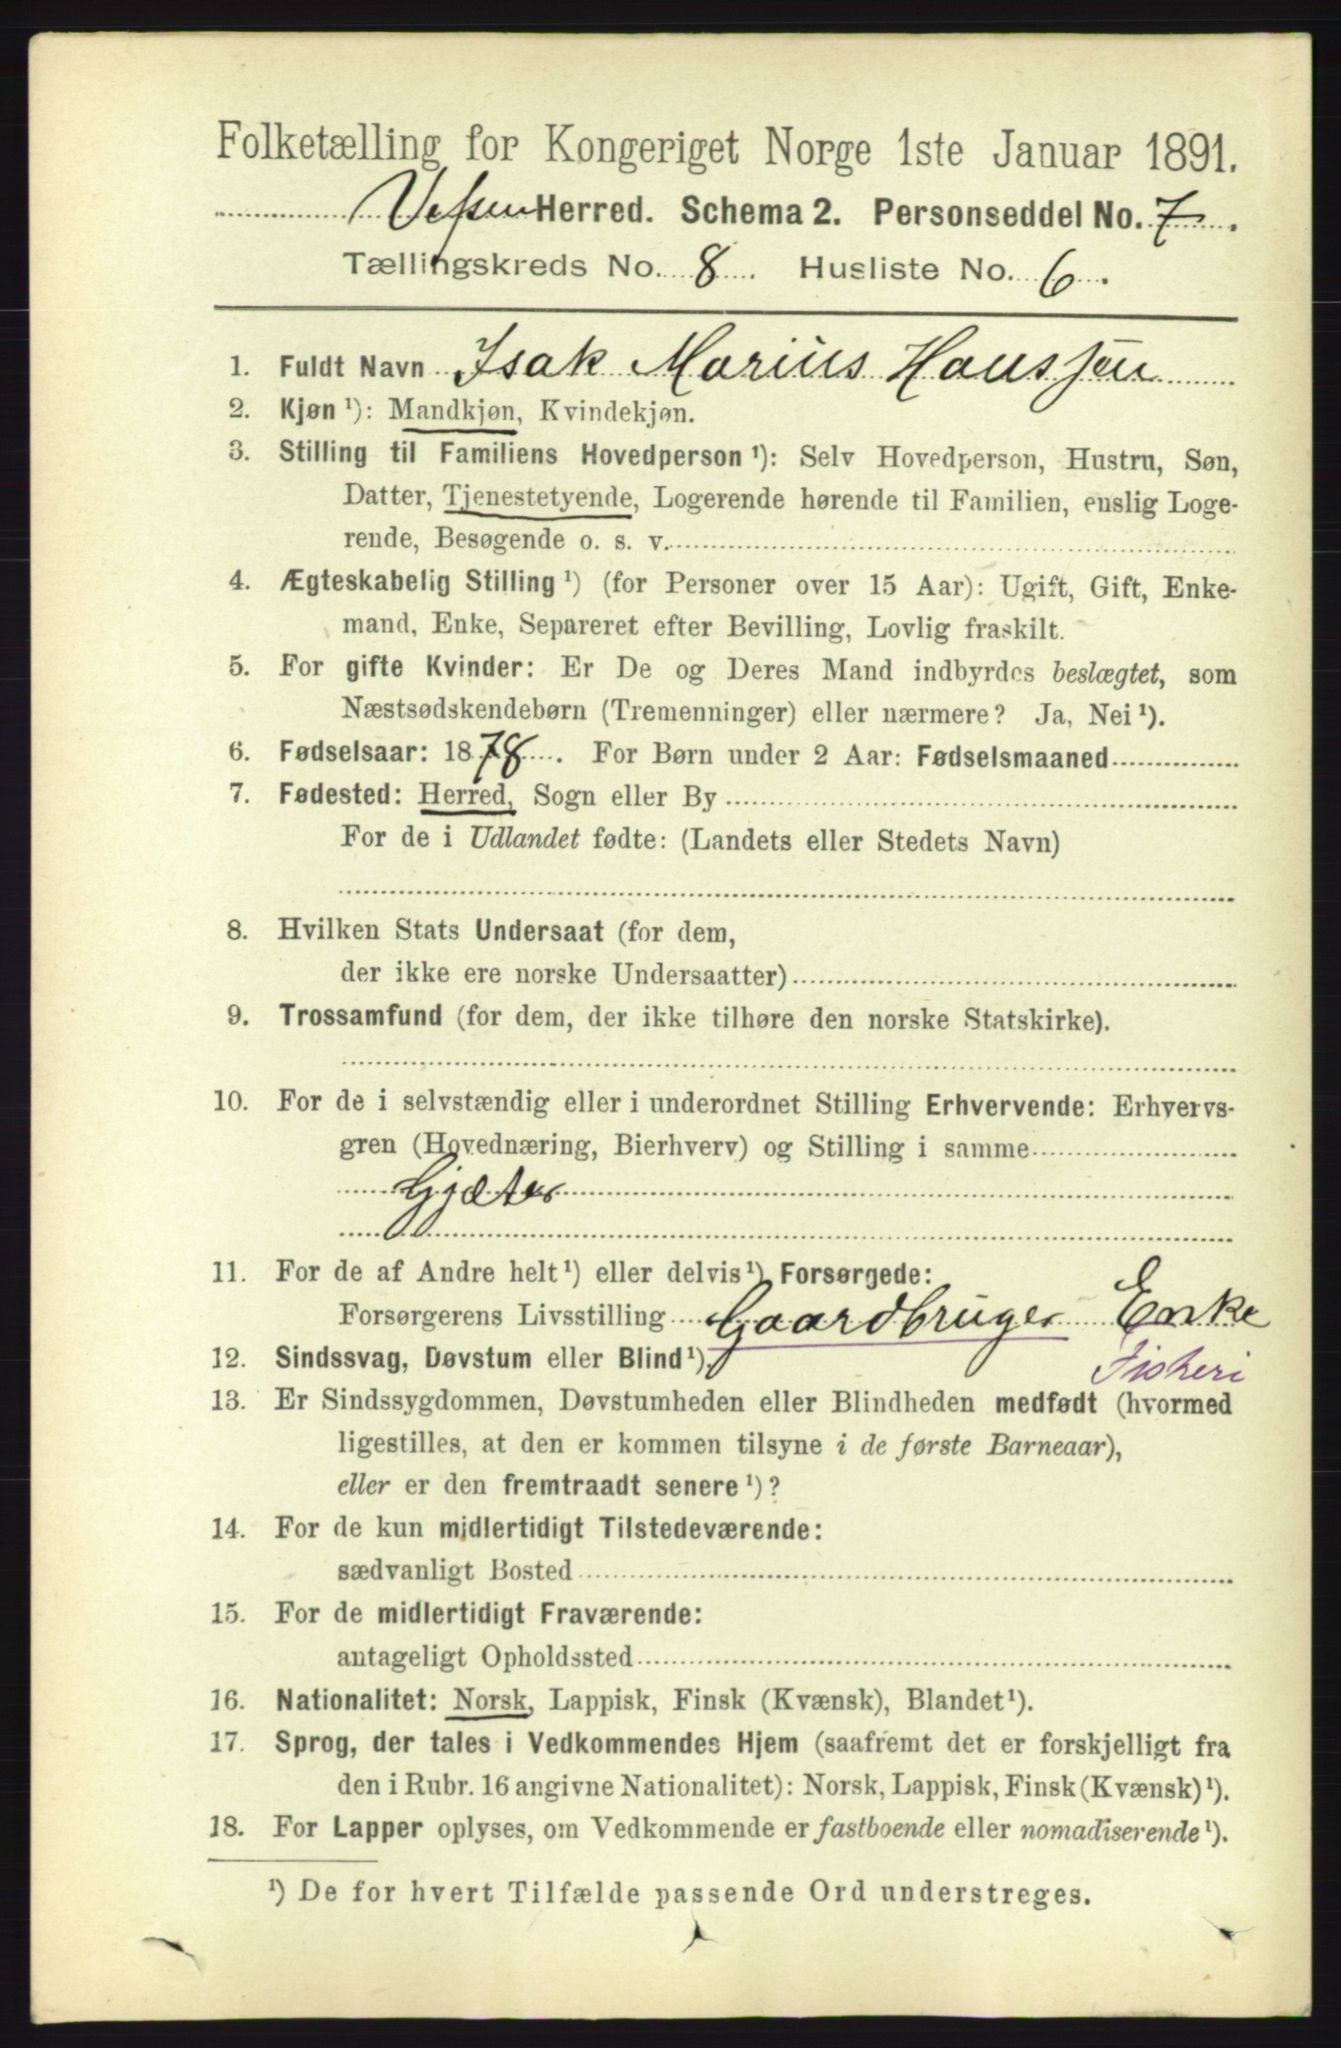 Folketælling for Kongeriget Norge 1ste Januar 1891.
Vefsen Herred. Schema 2. Personseddel No. 7.
Tællingskreds No. 8. Husliste No. 6.
1. Fuldt Navn Isak Marius Hanssen
2. Kjøn ¹): Mandkjøn, Kvindekjøn.
3. Stilling til Familiens Hovedperson ¹): Selv Hovedperson, Hustru, Søn,
Datter, Tjenestetyende, Logerende hørende til Familien, enslig Loge-
rende, Besøgende o. s. v.
4. Ægteskabelig Stilling ¹) (for Personer over 15 Aar): Ugift, Gift, Enke-
mand, Enke, Separeret efter Bevilling, Lovlig fraskilt.
5. For gifte Kvinder: Er De og Deres Mand indbyrdes beslægtet, som
Næstsødskendebørn (Tremenninger) eller nærmere? Ja, Nei ¹).
6. Fødselsaar: 1878. For Børn under 2 Aar: Fødselsmaaned
7. Fødested: Herred, Sogn eller By
For de i Udlandet fødte: (Landets eller Stedets Navn)
8. Hvilken Stats Undersaat (for dem,
der ikke ere norske Undersaatter)
9. Trossamfund (for dem, der ikke tilhøre den norske Statskirke).
10. For de i selvstændig eller i underordnet Stilling Erhvervende: Erhvervs-
gren (Hovednæring, Bierhverv) og Stilling i samme
Gjæter
11. For de af Andre helt ¹) eller delvis ¹) Forsørgede:
Forsørgerens Livsstilling Gaardbruger Enke
12. Sindssvag, Døvstum eller Blind ¹). Fiskeri
13. Er Sindssygdommen, Døvstumheden eller Blindheden medfødt (hvormed
ligestilles, at den er kommen tilsyne i de første Barneaar),
eller er den fremtraadt senere ¹)?
14. For de kun midlertidigt Tilstedeværende:
sædvanligt Bosted
15. For de midlertidigt Fraværende:
antageligt Opholdssted
16. Nationalitet: Norsk, Lappisk, Finsk (Kvænsk), Blandet ¹).
17. Sprog, der tales i Vedkommendes Hjem (saafremt det er forskjelligt fra
den i Rubr. 16 angivne Nationalitet): Norsk, Lappisk, Finsk (Kvænsk) ¹).
18. For Lapper oplyses, om Vedkommende er fastboende eller nomadiserende ¹).
¹) De for hvert Tilfælde passende Ord understreges.